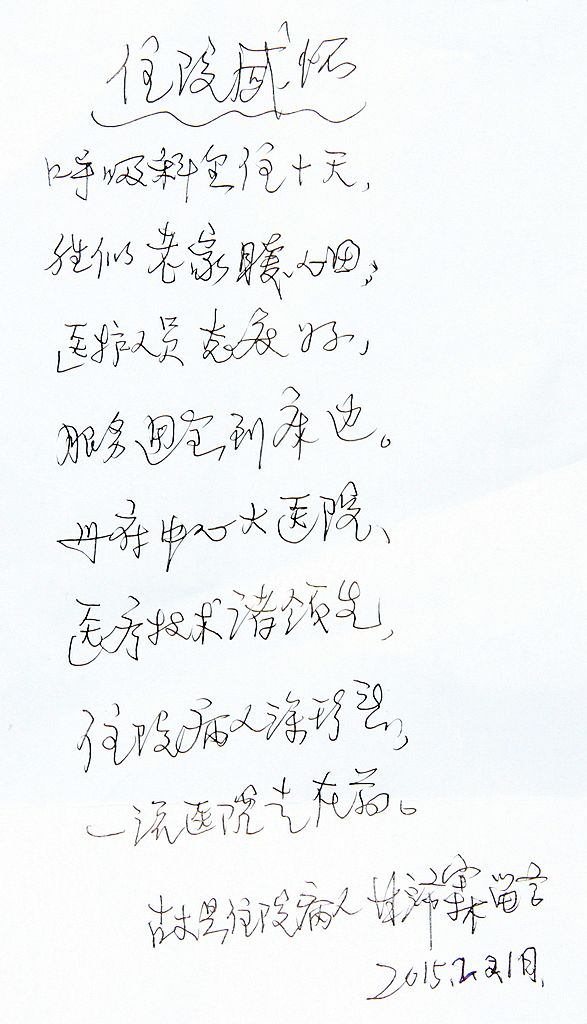 住院感怀
呼吸科室住十天,
胜似老家暖心田,
医护人员态度好,
服务周全到床边。
丹府中心大医院、
医疗技术诸领先,
住院病人深形
一流医院走在前。
县住院病人 留言
2015.